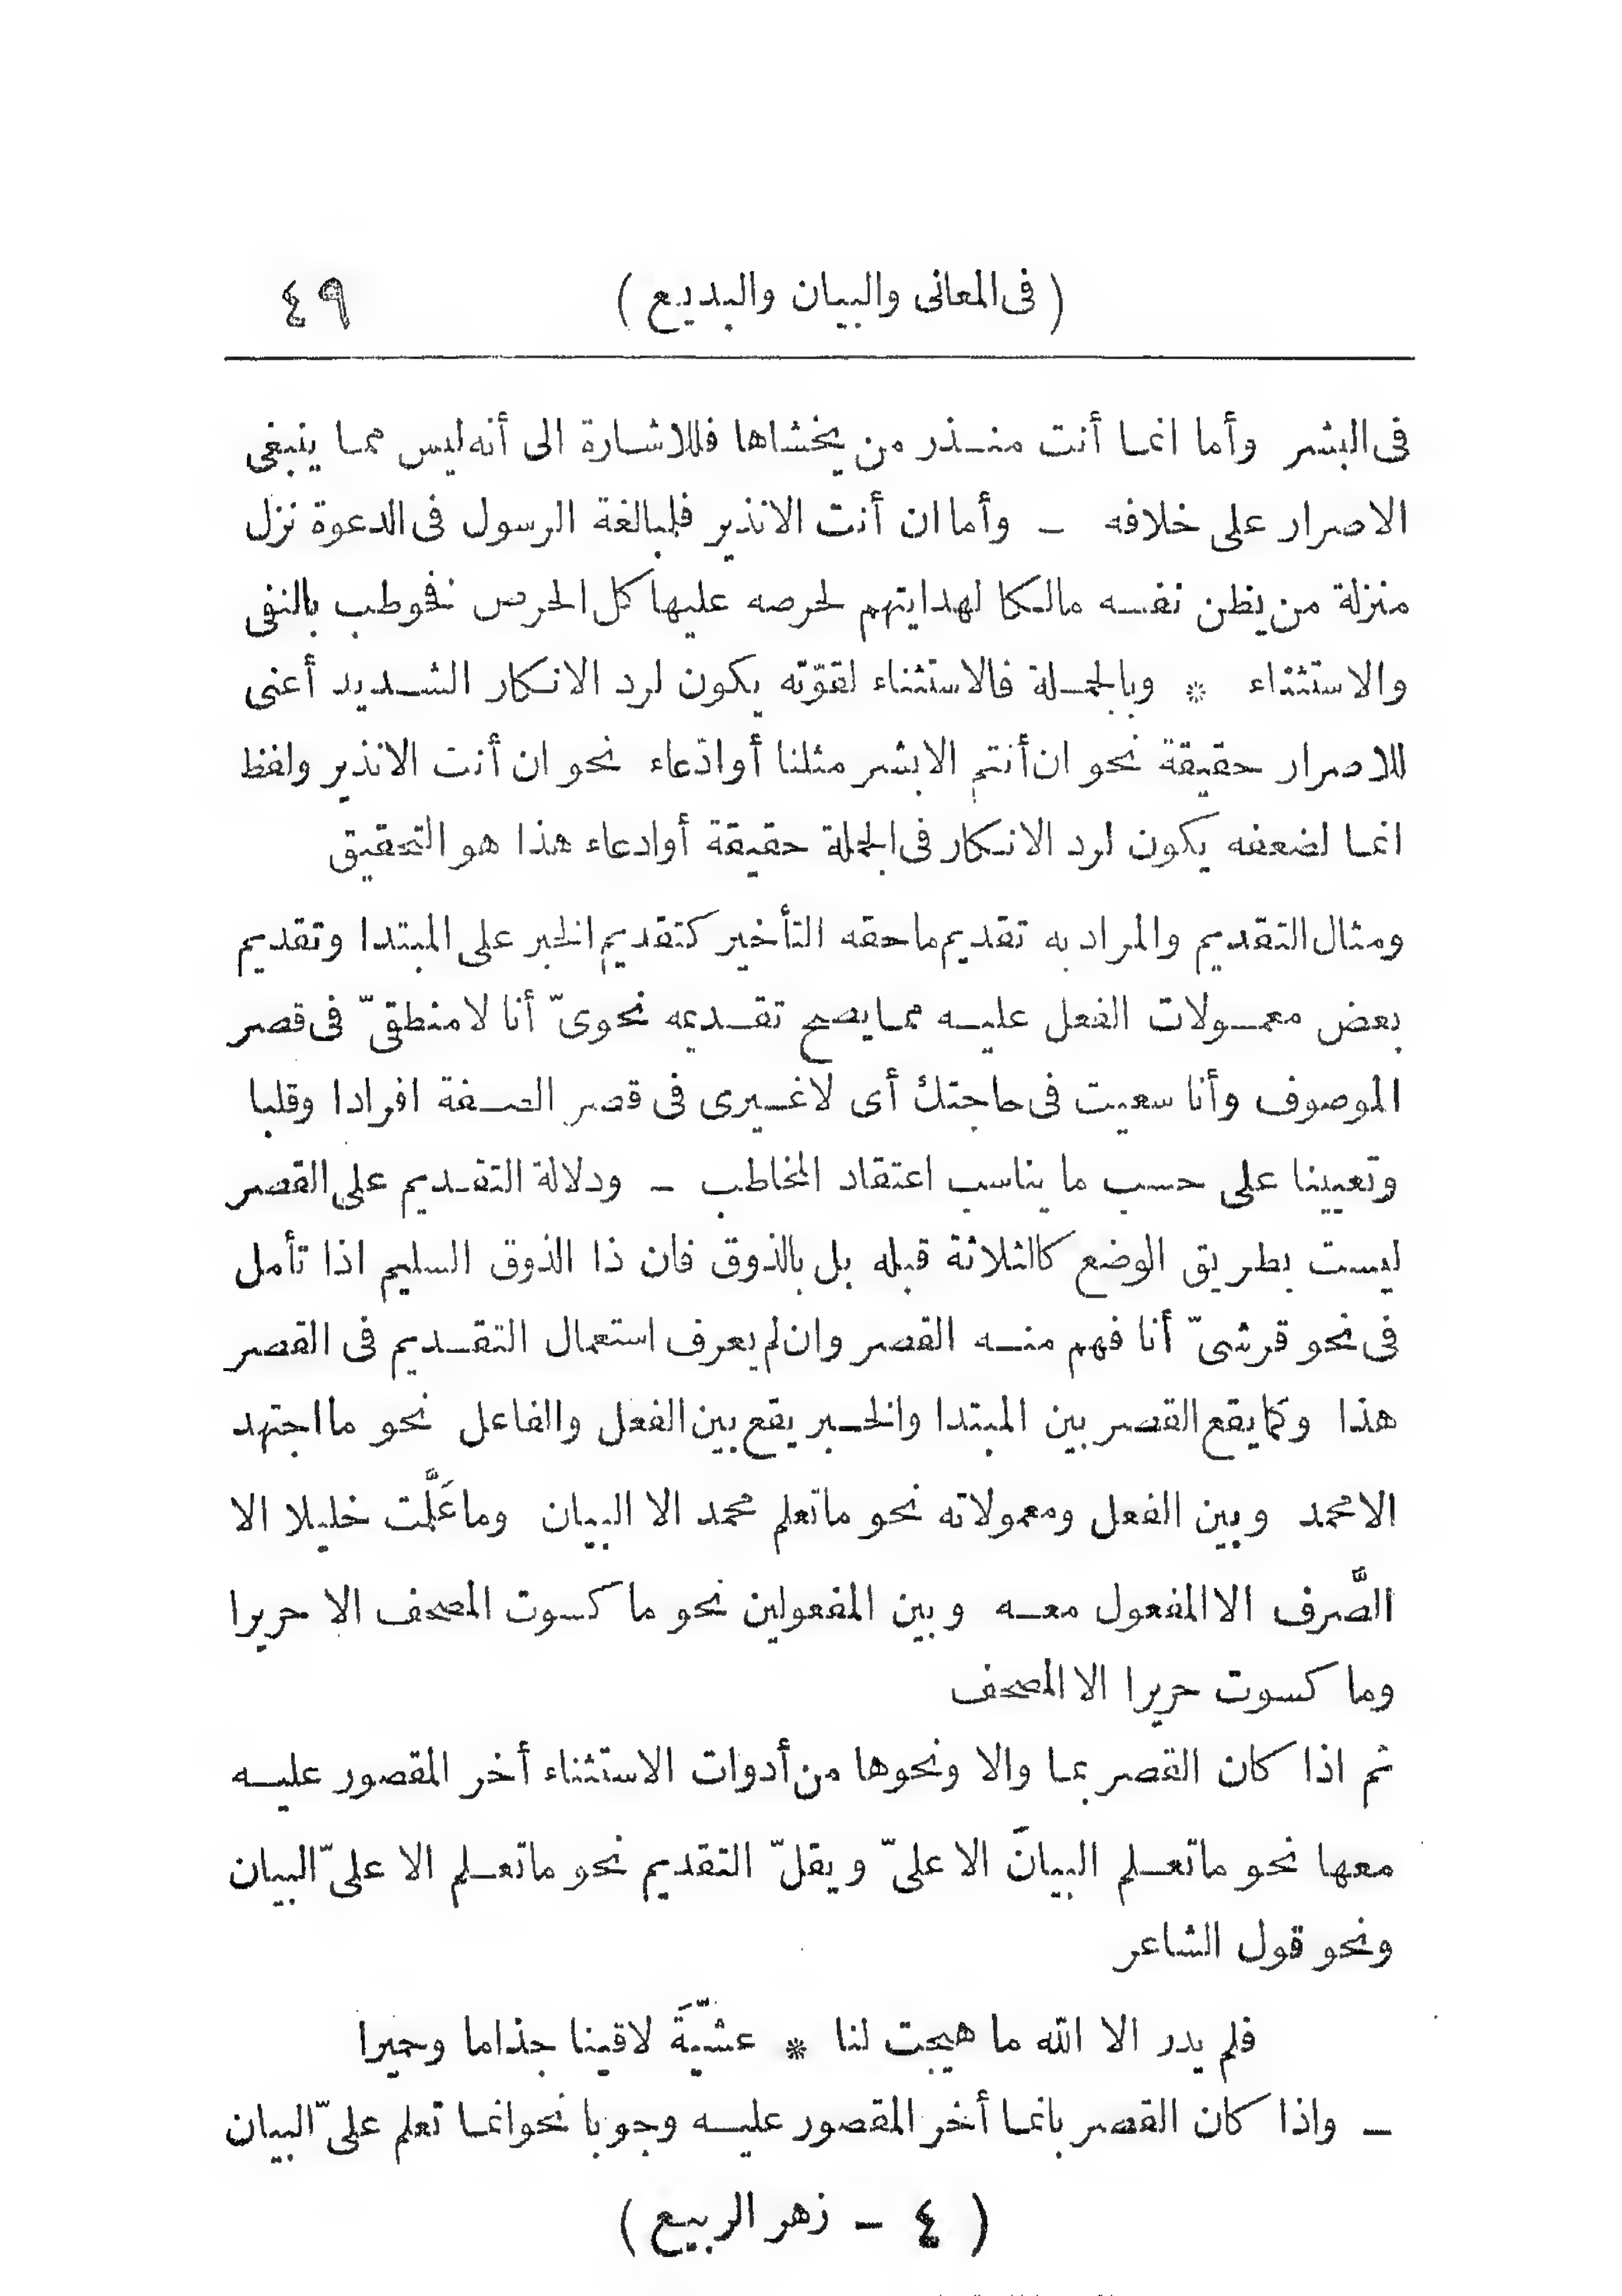 ( فى المعانى والبيان والبديع ) ٤٩
فى البشر وأما انما أنت منذر من يخشاها فللاشارة الى أنه ليس مما ينبغى
الاصرار على خلافه ـ وأما ان أنت الانذير فلمبالغة الرسول فى الدعوة نزل
منزلة من يظن نفسه مالكا لهدايتهم لحرصه عليها كل الحرص فخوطب بالنفى
والاستثناء * وبالجملة فالاستثناء لقوّته يكون لرد الانكار الشديد أعنى
للاصرار حقيقة نحو ان أنتم الابشر مثلنا أوادّعاء نحو ان أنت الانذير ولفظ
انما لضعفه يكون لرد الانكار فى الجملة حقيقة أوادعاء هذا هو التحقيق
ومثال التقديم والمراد به تقديم ماحقه التأخير كتقديم الخبر على المبتدا وتقديم
بعض معمولات الفعل عليه مما يصح تقديمه نحوىّ أنا لا منطقىّ فى قصر
الموصوف وأنا سعيت فى حاجتك أى لاغيرى فى قصر الصفة افرادا وقلبا
وتعيينا على حسب ما يناسب اعتقاد المخاطب ـ ودلالة التقديم على القصر
ليست بطريق الوضع كالثلاثة قبله بل بالذوق فان ذا الذوق السليم اذا تأمل
فى نحو قرشىّ أنا فهم منه القصر وان لم يعرف استعمال التقديم فى القصر
هذا وكما يقع القصر بين المبتدا والخبر يقع بين الفعل والفاعل نحو ما اجتهد
الامحمد وبين الفعل ومعمولاته نحو ماتعلم محمد الا البيان وماعَلَّمت خليلا الا
الصَّرف الا المفعول معه وبين المفعولين نحو ما كسوت المصحف الا حريرا
وما كسوت حريرا الا المصحف
ثم اذا كان القصر بما والا ونحوها من أدوات الاستثناء أخر المقصور عليه
معها نحو ماتعلم البيانَ الا علىّ ويقلّ التقديم نحو ماتعلم الا علىّ البيان
ونحو قول الشاعر
فلم يدر الا الله ما هيجت لنا * عشيَّةَ لاقينا جذاما وحميرا
ـ واذا كان القصر بانما أخر المقصور عليه وجوبا نحوانما تعلم علىّ البيان
( ٤ ـ زهر الربيع )